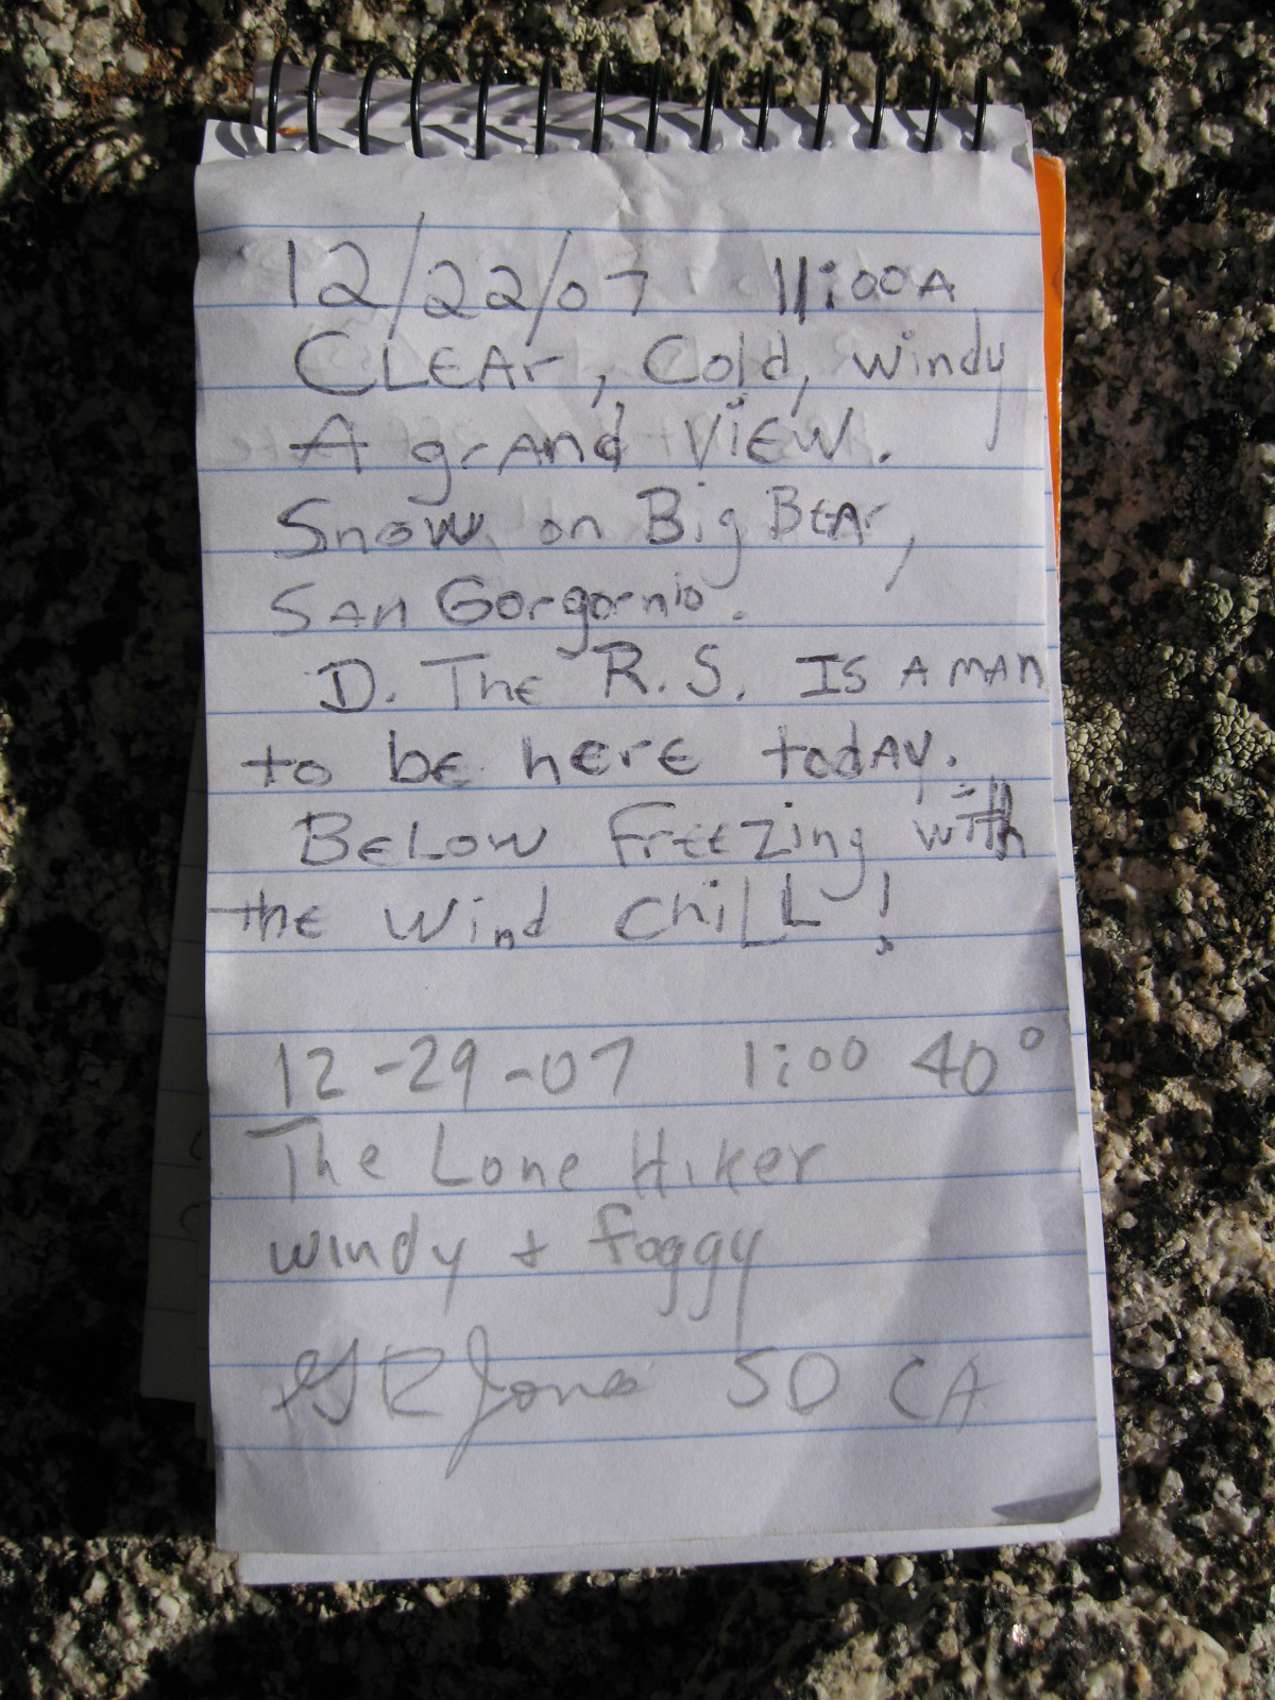 12/22/07 11:00A
CLEAr, Cold, windy
A grAnd View.
Snow on Big BEAr,
SAn Gorgornio.
D. The R.S. Is A mAn
to be herE todAy.
BeLow freezing with
the wind chiLL!
12-29-07 1:00 40°
The Lone Hiker
windy + foggy
R Jones SD CA